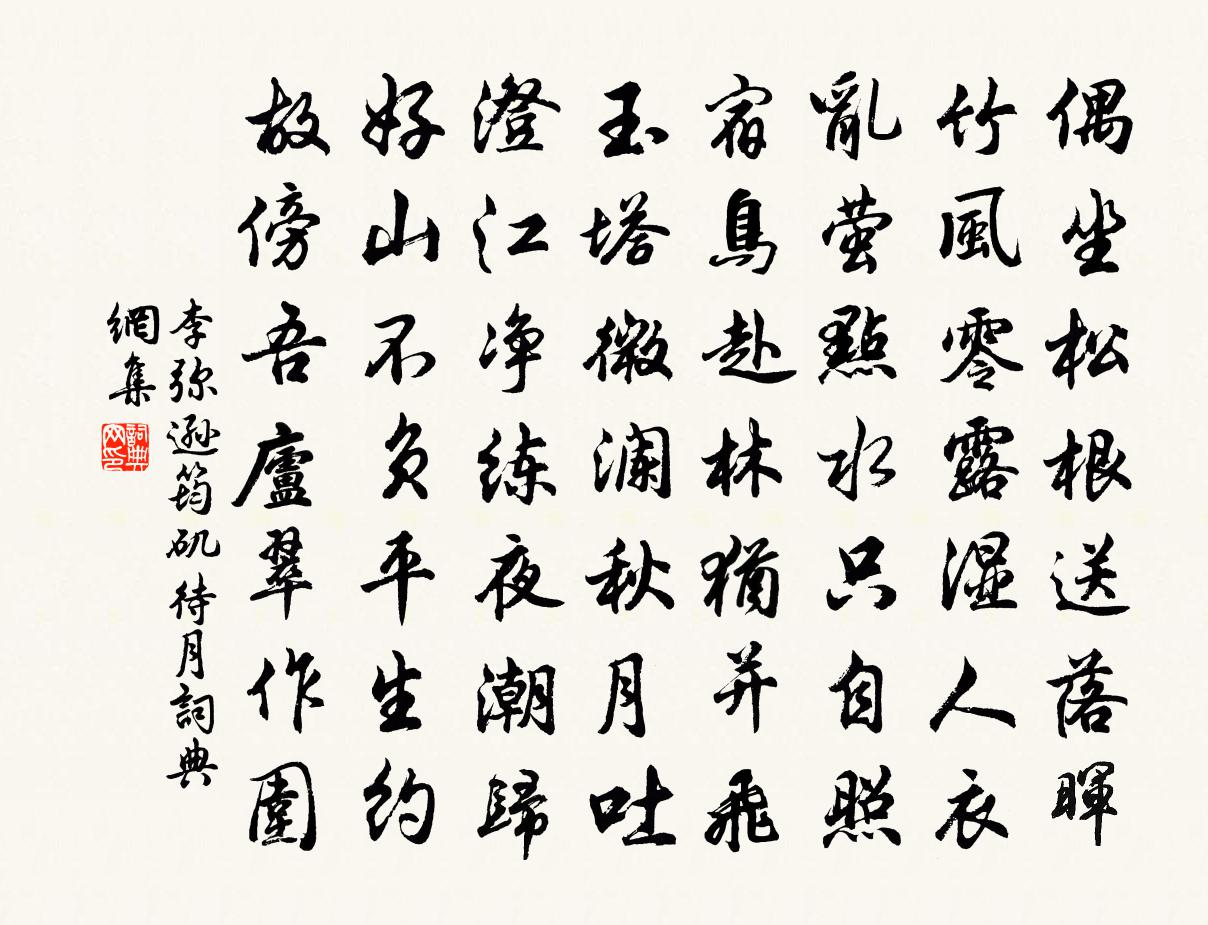 偶坐松根送落暉
竹風零露湿人衣
亂萤點水只自照
宿鳥赴林猶并飛
玉塔微澜秋月吐
澄江净练夜潮歸
好山不负平生约
故傍吾廬翠作圍
李弥遜筠矶待月詞典
網集
詞典网印